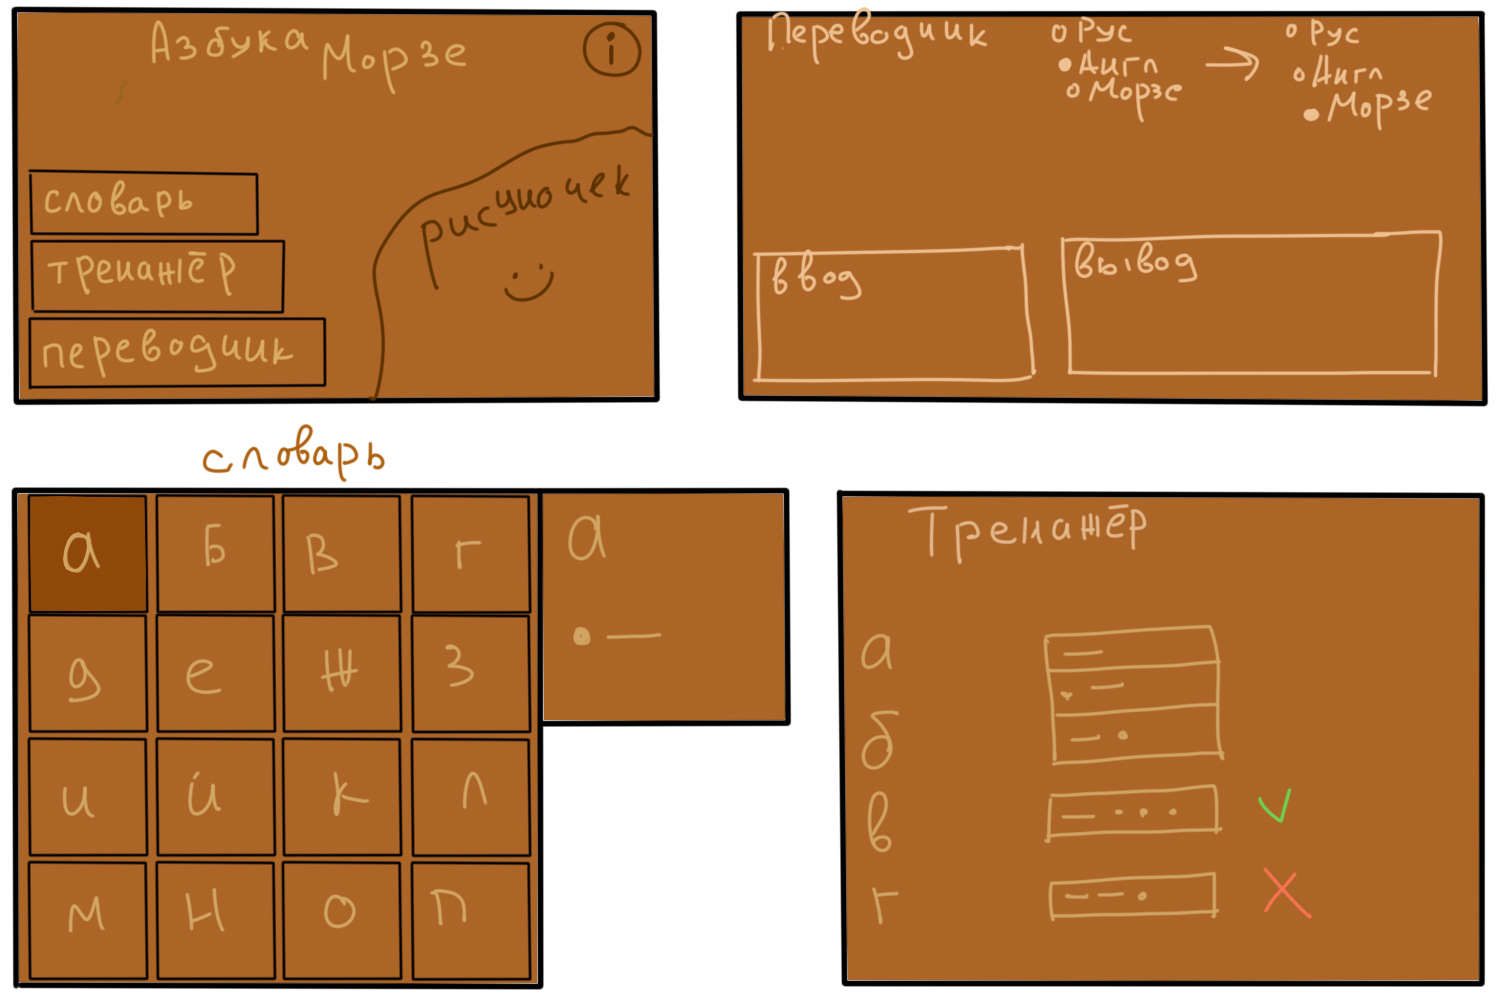 Азбука Морзе
i
словарь
тренажёр
переводчик
рисуночек
Переводчик
Рус
Англ
Морзе
Рус
Англ
Морзе
ввод
вывод
словарь
а Б В г
д е ж З
и й к л
м Н о п
а
• —
Тренажёр
а
—
• —
— •
б
в
— • • •
г
— — •